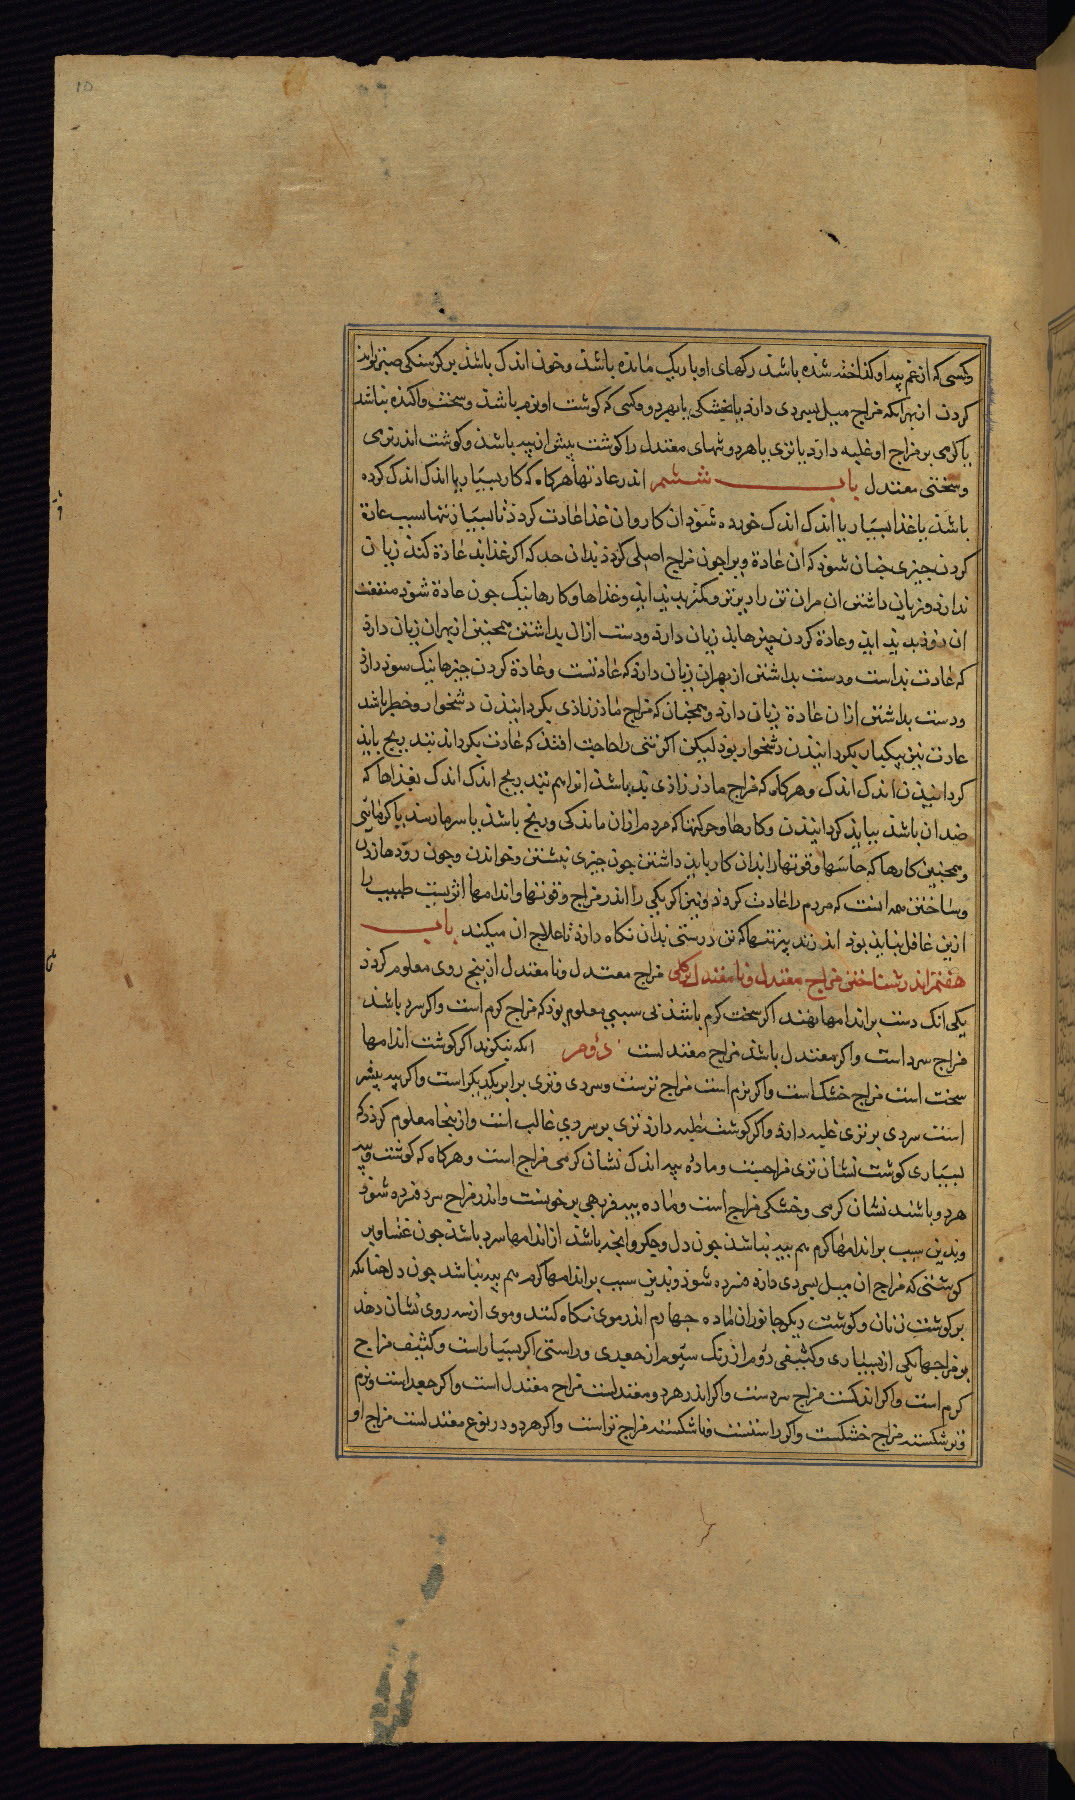 10
وکسی که از غم پیه او کذاخته شذه باشذ رکهای او باریک مانده باشذ وخون اندک باشذ بر کرسنکی صبر نتواند
کردن از بهر انکه مزاج میل بسردی دارذ یا بخشکی یا بهر دو وکسی که کوشت او نرم باشذ وسخت واکنده نباشذ
یا کرمی بر مزاج او غلبه دارد یا تری یا هر دو وتنهای معتدل را کوشت بیش از پیه باشذ وکوشت اندر نرمی
وسختی معتدل باب ششم اندر عادتها هرکاه که کار بسیار یا اندک اندک کرده
باشذ یا غذا بسیار یا اندک اندک خورده شوذ ان کار وان غذا عادت کردذ تا بسیار تنها بسبب عادة
کردن چیزی چنان شوذ که ان عادة ویرا چون مزاج اصلی کردذ بدان حد که اکر غذا بد عادة کنذ زیان
ندارذ وزیان داشتن ان مر ان تن را دیرتر وکمتر پدید ایذ وغذاها وکارها نیک چون عادة شوذ منفعت
ان زوذ پدید ایذ وعادة کردن چیزها بذ زیان دارذ ودست ازان بداشتن همچنین از بهر ان زیان دارد
که عادت بداست ودست بداشتن از بهر ان زیان دارذ که عادتست وعادة کردن چیزها نیک سوذ دارذ
ودست بداشتن ازان عادة زیان دارذ وهمچنان که مزاج ماذرزاذی بکردانیذن دشخوار وخطر باشد
عادت نیز بیکبار بکردانیذن دشخوار بوذ لیکن اکر تنی را حاجت افتذ که عادت بکرداند بتدریج بایذ
کردانیذن اندک اندک وهرکاه که مزاج ماذرزاذی بد باشذ انرا هم بتدریج اندک اندک بغذاها که
ضد ان باشذ ببایذ کردانیذن وکارها وحرکتها که مردم ازان ماندکی ورنج باشذ یا سرما رسذ یا کرمائی
وهمچنین کارها که حاسها وقوتها را بدان کار بایذ داشتن چون چیزی نبشتن وخواندن وچون روذها زدن
وساختن همه انست که مردم را عادت کردذ ونیز اکر یکی را اندر مزاج وقوتها واندامها اثریست طبیب را
ازین غافل نباید بود اندر تدبیر تنها که تن درستی بدان نکاه دارذ تا علاج ان میکند باب
هفتم اندر شناختن مزاج معتدل ونا معتدل کلی مزاج معتدل ونا معتدل از پنج روی معلوم کردذ
یکی انک دست بر اندامها نهند اکر سخت کرم باشذ بی سببی معلوم بوذ که مزاج کرم است واکر سرد باشذ
مزاج سرد است واکر معتدل باشذ مزاج معتدلست دوم انکه بنکرند اکر کوشت اندامها
سخت است مزاج خشک است واکر نرم است مزاج ترست وسردی وتری برابر یکدیکر است واکر پیه بیشتر
است سردی بر تری غلبه دارذ واکر کوشت غلبه دارذ تری بر سردی غالب است وازینجا معلوم کردذ که
بسیاری کوشت نشان تری مزاجست وماده پیه اندک نشان کرمی مزاج است وهرکاه که کوشت وپیه
هر دو باشند نشان کرمی وخشکی مزاج است وماده پیه فربهی پر خونست واندر مزاج سرد فسرده شوذ
وبدین سبب بر اندامها کرم هم پیه نباشذ چون دل وجکر وانچه باشذ از اندامها سرد باشذ چون غشا وبر
کوشتی که مزاج ان میل بسردی دارد فسرده شوذ وبدین سبب بر اندامها کرم هم پیه نباشد چون دل چنانکه
بر کوشت زنان وکوشت دیکر جانوران ماده چهارم اندر موی نکاه کنند وموی از سه روی نشان دهد
بر مزاجها یکی از بسیاری وکثیفی دوم از رنک سیوم از جعدی وراستی اکر بسیار است وکثیف مزاج
کرم است واکر اندکست مزاج سردست واکر اندر هر دو معتدلست مزاج معتدل است واکر جعد است ونرم
وپر شکسته مزاج خشکست واکر راستست ونا شکسته مزاج تر است واکر هر دو در نوع معتدلست مزاج او